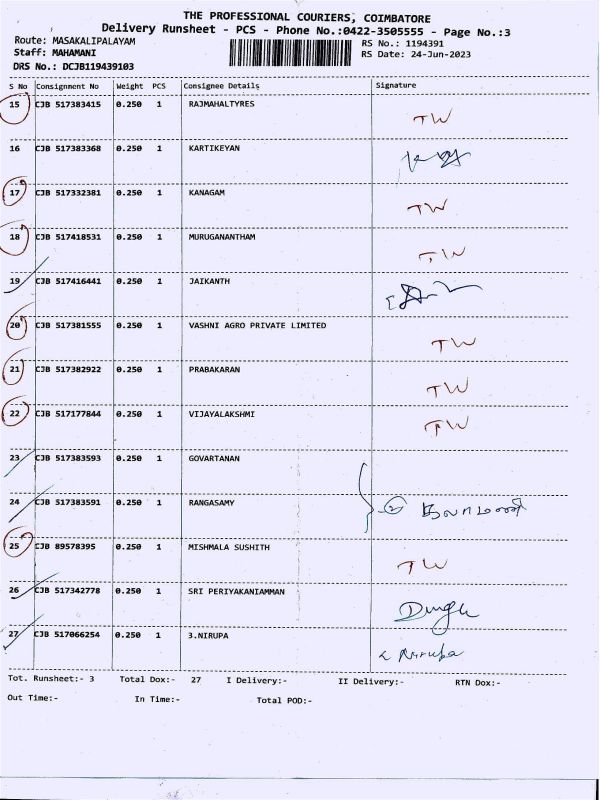 THE PROFESSIONAL COURIERS, COIMBATORE
Delivery Runsheet - PCS - Phone No.:0422-3505555 - Page No.:3
Route: MASAKALIPALAYAM RS No.: 1194391
Staff: MAHAMANI RS Date: 24-Jun-2023
DRS No.: DCJB119439103
S No Consignment No Weight PCS Consignee Details Signature
15 CJB 517383415 0.250 1 RAJMAHALTYRES TW
16 CJB 517383368 0.250 1 KARTIKEYAN
17 CJB 517332381 0.250 1 KANAGAM TW
18 CJB 517418531 0.250 1 MURUGANANTHAM TW
19 CJB 517416441 0.250 1 JAIKANTH
20 CJB 517381555 0.250 1 VASHNI AGRO PRIVATE LIMITED TW
21 CJB 517382922 0.250 1 PRABAKARAN TW
22 CJB 517177844 0.250 1 VIJAYALAKSHMI TW
23 CJB 517383593 0.250 1 GOVARTANAN
24 CJB 517383591 0.250 1 RANGASAMY 2
25 CJB 89578395 0.250 1 MISHMALA SUSHITH TW
26 CJB 517342778 0.250 1 SRI PERIYAKANIAMMAN
27 CJB 517066254 0.250 1 3.NIRUPA Nirupa
Tot. Runsheet:- 3 Total Dox:- 27 I Delivery:- II Delivery:- RTN Dox:-
Out Time:- In Time:- Total POD:-